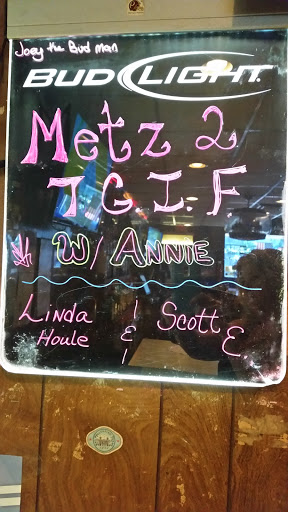 Joey the Bud man
BUD LIGHT
Metz 2
T G I. F.
W/ ANNIE
Linda Houle & Scott E